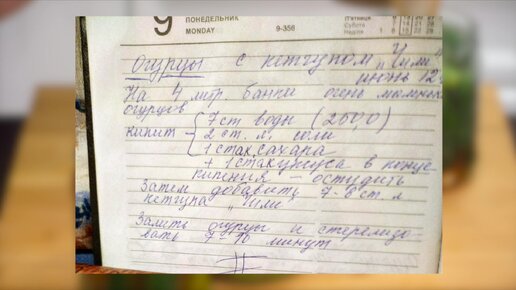 9 ПОНЕДЕЛЬНИК
MONDAY 9-356
Пятница
Суббота
Неделя
Огурцы с кетчупом „Чили"
июнь 12
На 4 литр. банки очень маленьк.
огурцов
кипит
7 ст воды (250,0)
2 ст. л. соли
1 стак. сахара
+ 1 стак уксуса в конце
кипения – остудить
Затем добавить 7-8 ст. л
кетчупа „Чили"
Залить огурцы и стерелизо
вать 7-10 минут